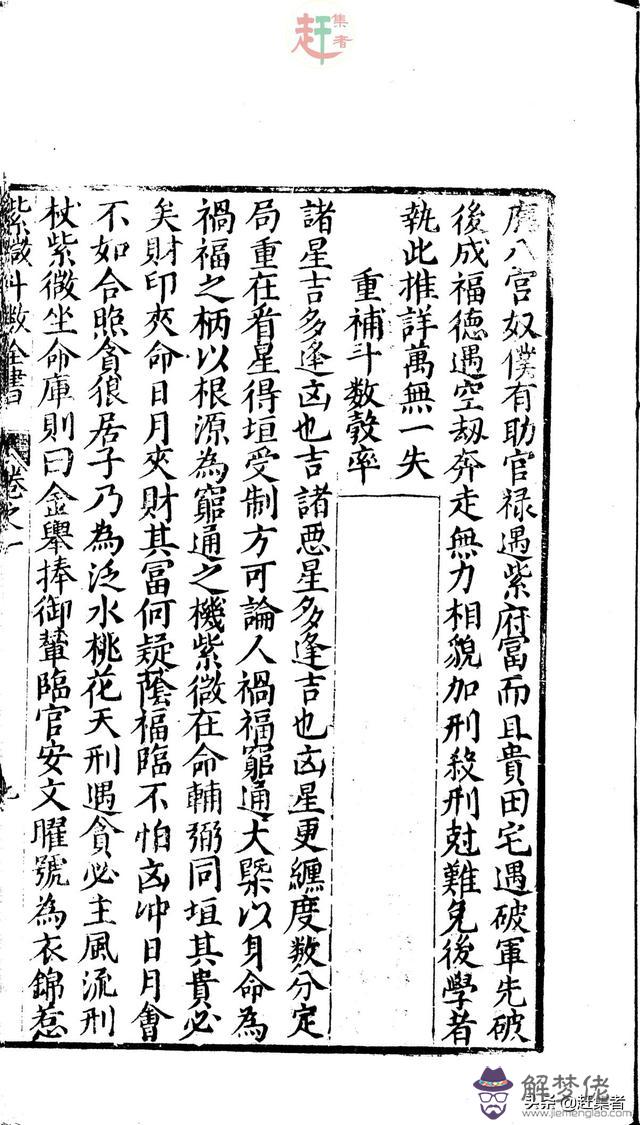 赶集者
廣八宮奴僕有助官祿遇紫府富而且貴田宅遇破軍先破
後成福德遇空刼奔走無力相貌加刑殺刑尅難免後學者
執此推詳萬無一失
重補斗数彀率
諸星吉多逢凶也吉諸惡星多逢吉也凶星更纏度数分定
局重在看星得垣受制方可論人禍福窮通大槩以身命為
禍福之柄以根源為窮通之機紫微在命輔弼同垣其貴必
矣財印夾命日月夾財其冨何疑蔭福臨不怕凶冲日月會
不如合照貪狼居子乃為泛水桃花天刑遇貪必主風流刑
杖紫微坐命庫則曰金轝捧御輦臨官安文曜號為衣錦惹
紫微斗数全書 卷之一
九
解梦佬
www.jiemenglao.com
头条@赶集者